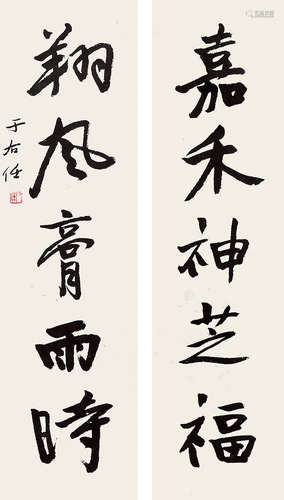 嘉禾神芝福
翔风膏雨時
于右任